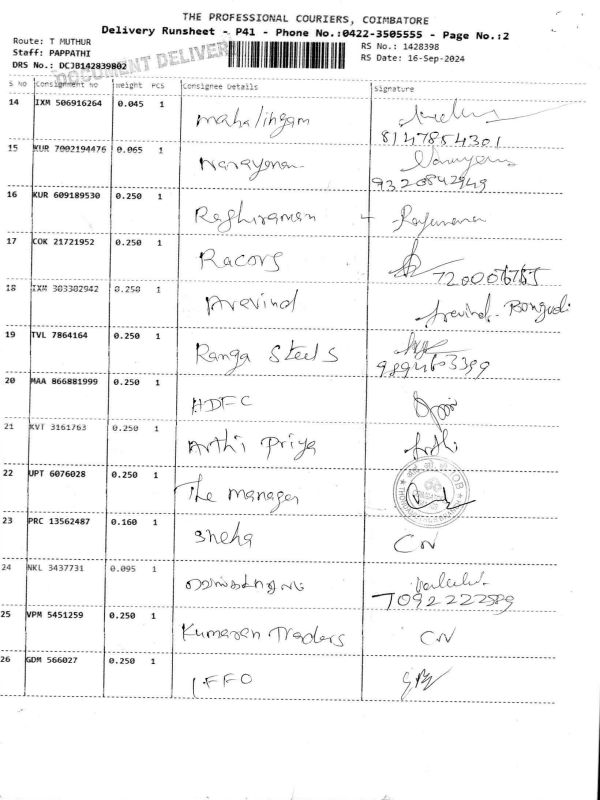 THE PROFESSIONAL COURIERS, COIMBATORE
Delivery Runsheet - P41 - Phone No.:0422-3505555 - Page No.:2
Route: T MUTHUR
RS No.: 1428398
Staff: PAPPATHI
RS Date: 16-Sep-2024
DRS No.: DCJB142839802
DOCUMENT DELIVERY
S No Consignment No Weight PCS Consignee Details Signature
14 IXM 506916264 0.045 1 Mahalingam
8147854301
15 KUR 7002194476 0.065 1 Narayanan
9320842949
16 KUR 609189530 0.250 1 Raghuraman
17 COK 21721952 0.250 1 Racors
18 IXM 303302942 0.250 1 Aravind Aravind
19 TVL 7864164 0.250 1 Ranga Steels
9894603399
20 MAA 866881999 0.250 1 HDFC
21 KVT 3161763 0.250 1 Arthi Priya Arthi
22 UPT 6076028 0.250 1 The manager
23 PRC 13562487 0.160 1 Sneha CN
24 NKL 3437731 0.095 1
7092222589
25 VPM 5451259 0.250 1 Kumaran Traders CN
26 GDM 566027 0.250 1 IFFO